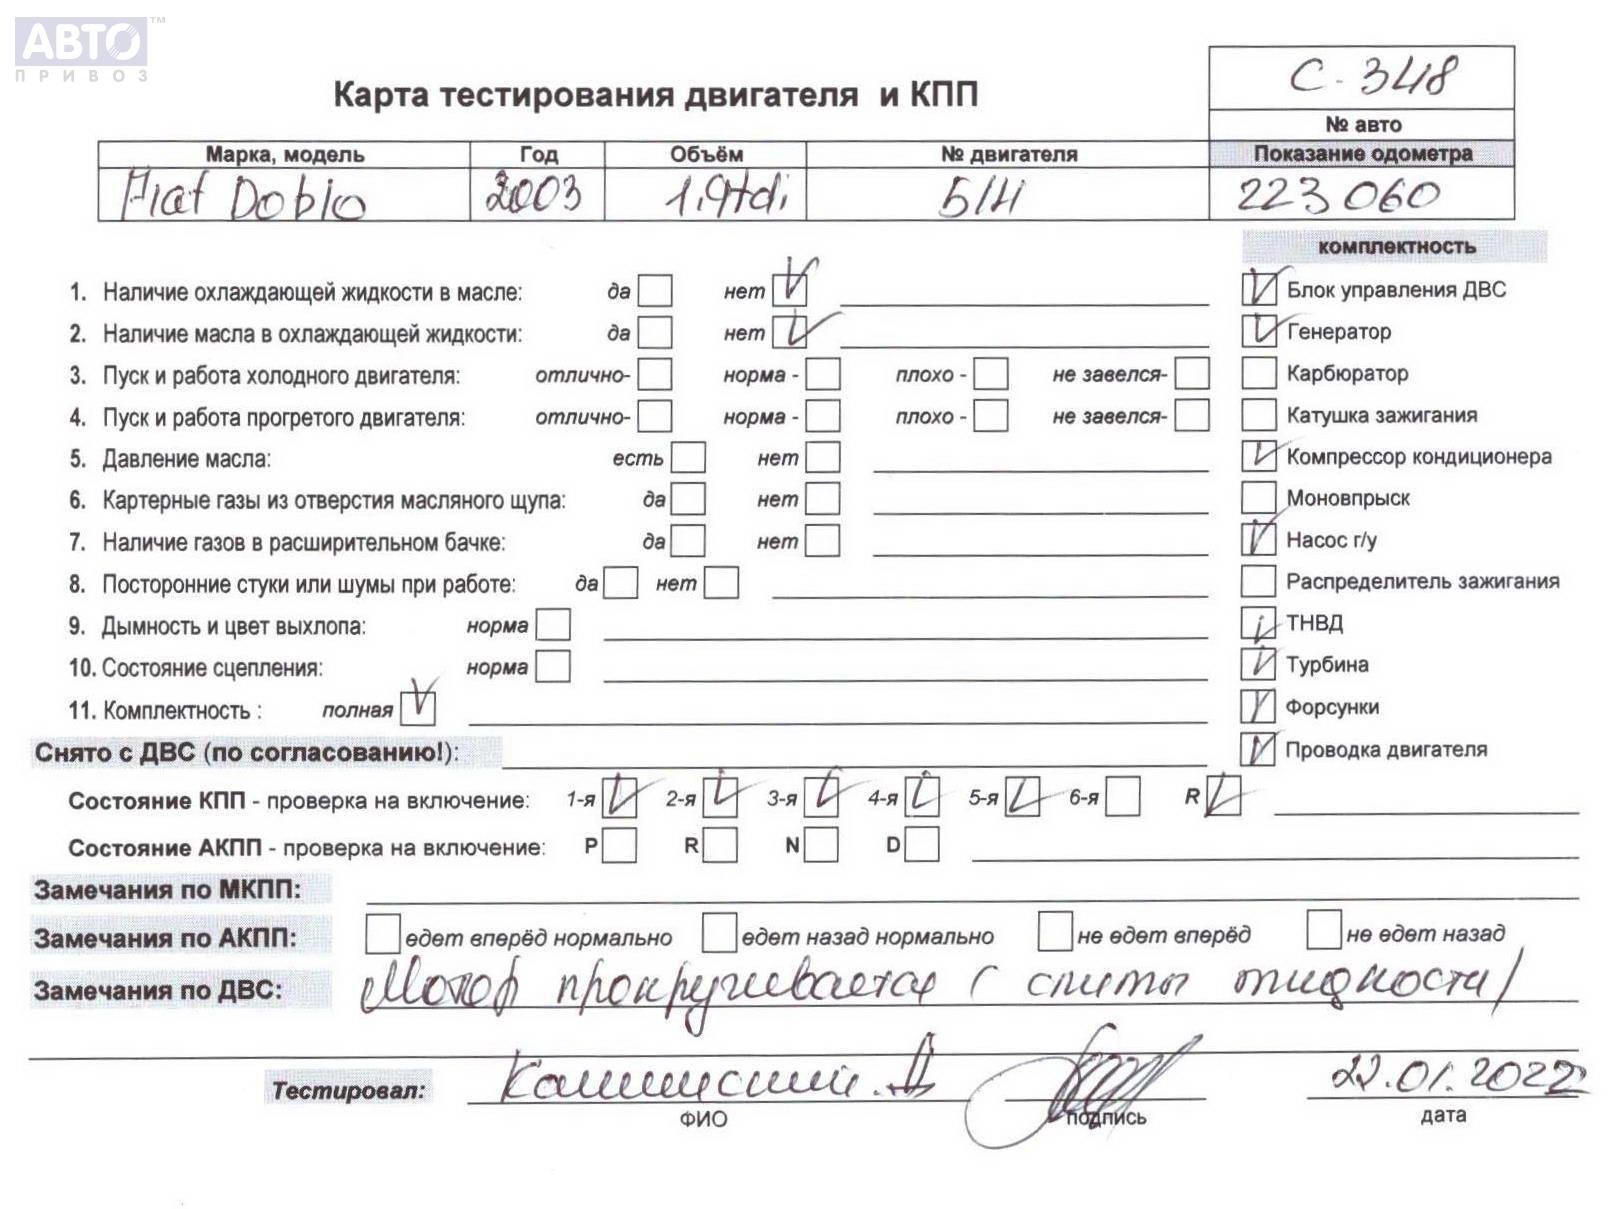 АВТО™
ПРИВОЗ
Карта тестирования двигателя и КПП
С-348
№ авто
Марка, модель Год Объём № двигателя Показание одометра
Fiat Doblo 2003 1.9tdi 5/Н 223 060
комплектность
1. Наличие охлаждающей жидкости в масле: да нет Блок управления ДВС
2. Наличие масла в охлаждающей жидкости: да нет Генератор
3. Пуск и работа холодного двигателя: отлично- норма - плохо - не завелся- Карбюратор
4. Пуск и работа прогретого двигателя: отлично- норма - плохо - не завелся- Катушка зажигания
5. Давление масла: есть нет Компрессор кондиционера
6. Картерные газы из отверстия масляного щупа: да нет Моновпрыск
7. Наличие газов в расширительном бачке: да нет Насос г/у
8. Посторонние стуки или шумы при работе: да нет Распределитель зажигания
9. Дымность и цвет выхлопа: норма ТНВД
10. Состояние сцепления: норма Турбина
11. Комплектность : полная Форсунки
Снято с ДВС (по согласованию!): Проводка двигателя
Состояние КПП - проверка на включение: 1-я 2-я 3-я 4-я 5-я 6-я R
Состояние АКПП - проверка на включение: P R N D
Замечания по МКПП:
Замечания по АКПП: едет вперёд нормально едет назад нормально не едет вперёд не едет назад
Замечания по ДВС: Мотор прокручивается ( слиты жидкости)
Тестировал: 22.01.2022
ФИО подпись дата